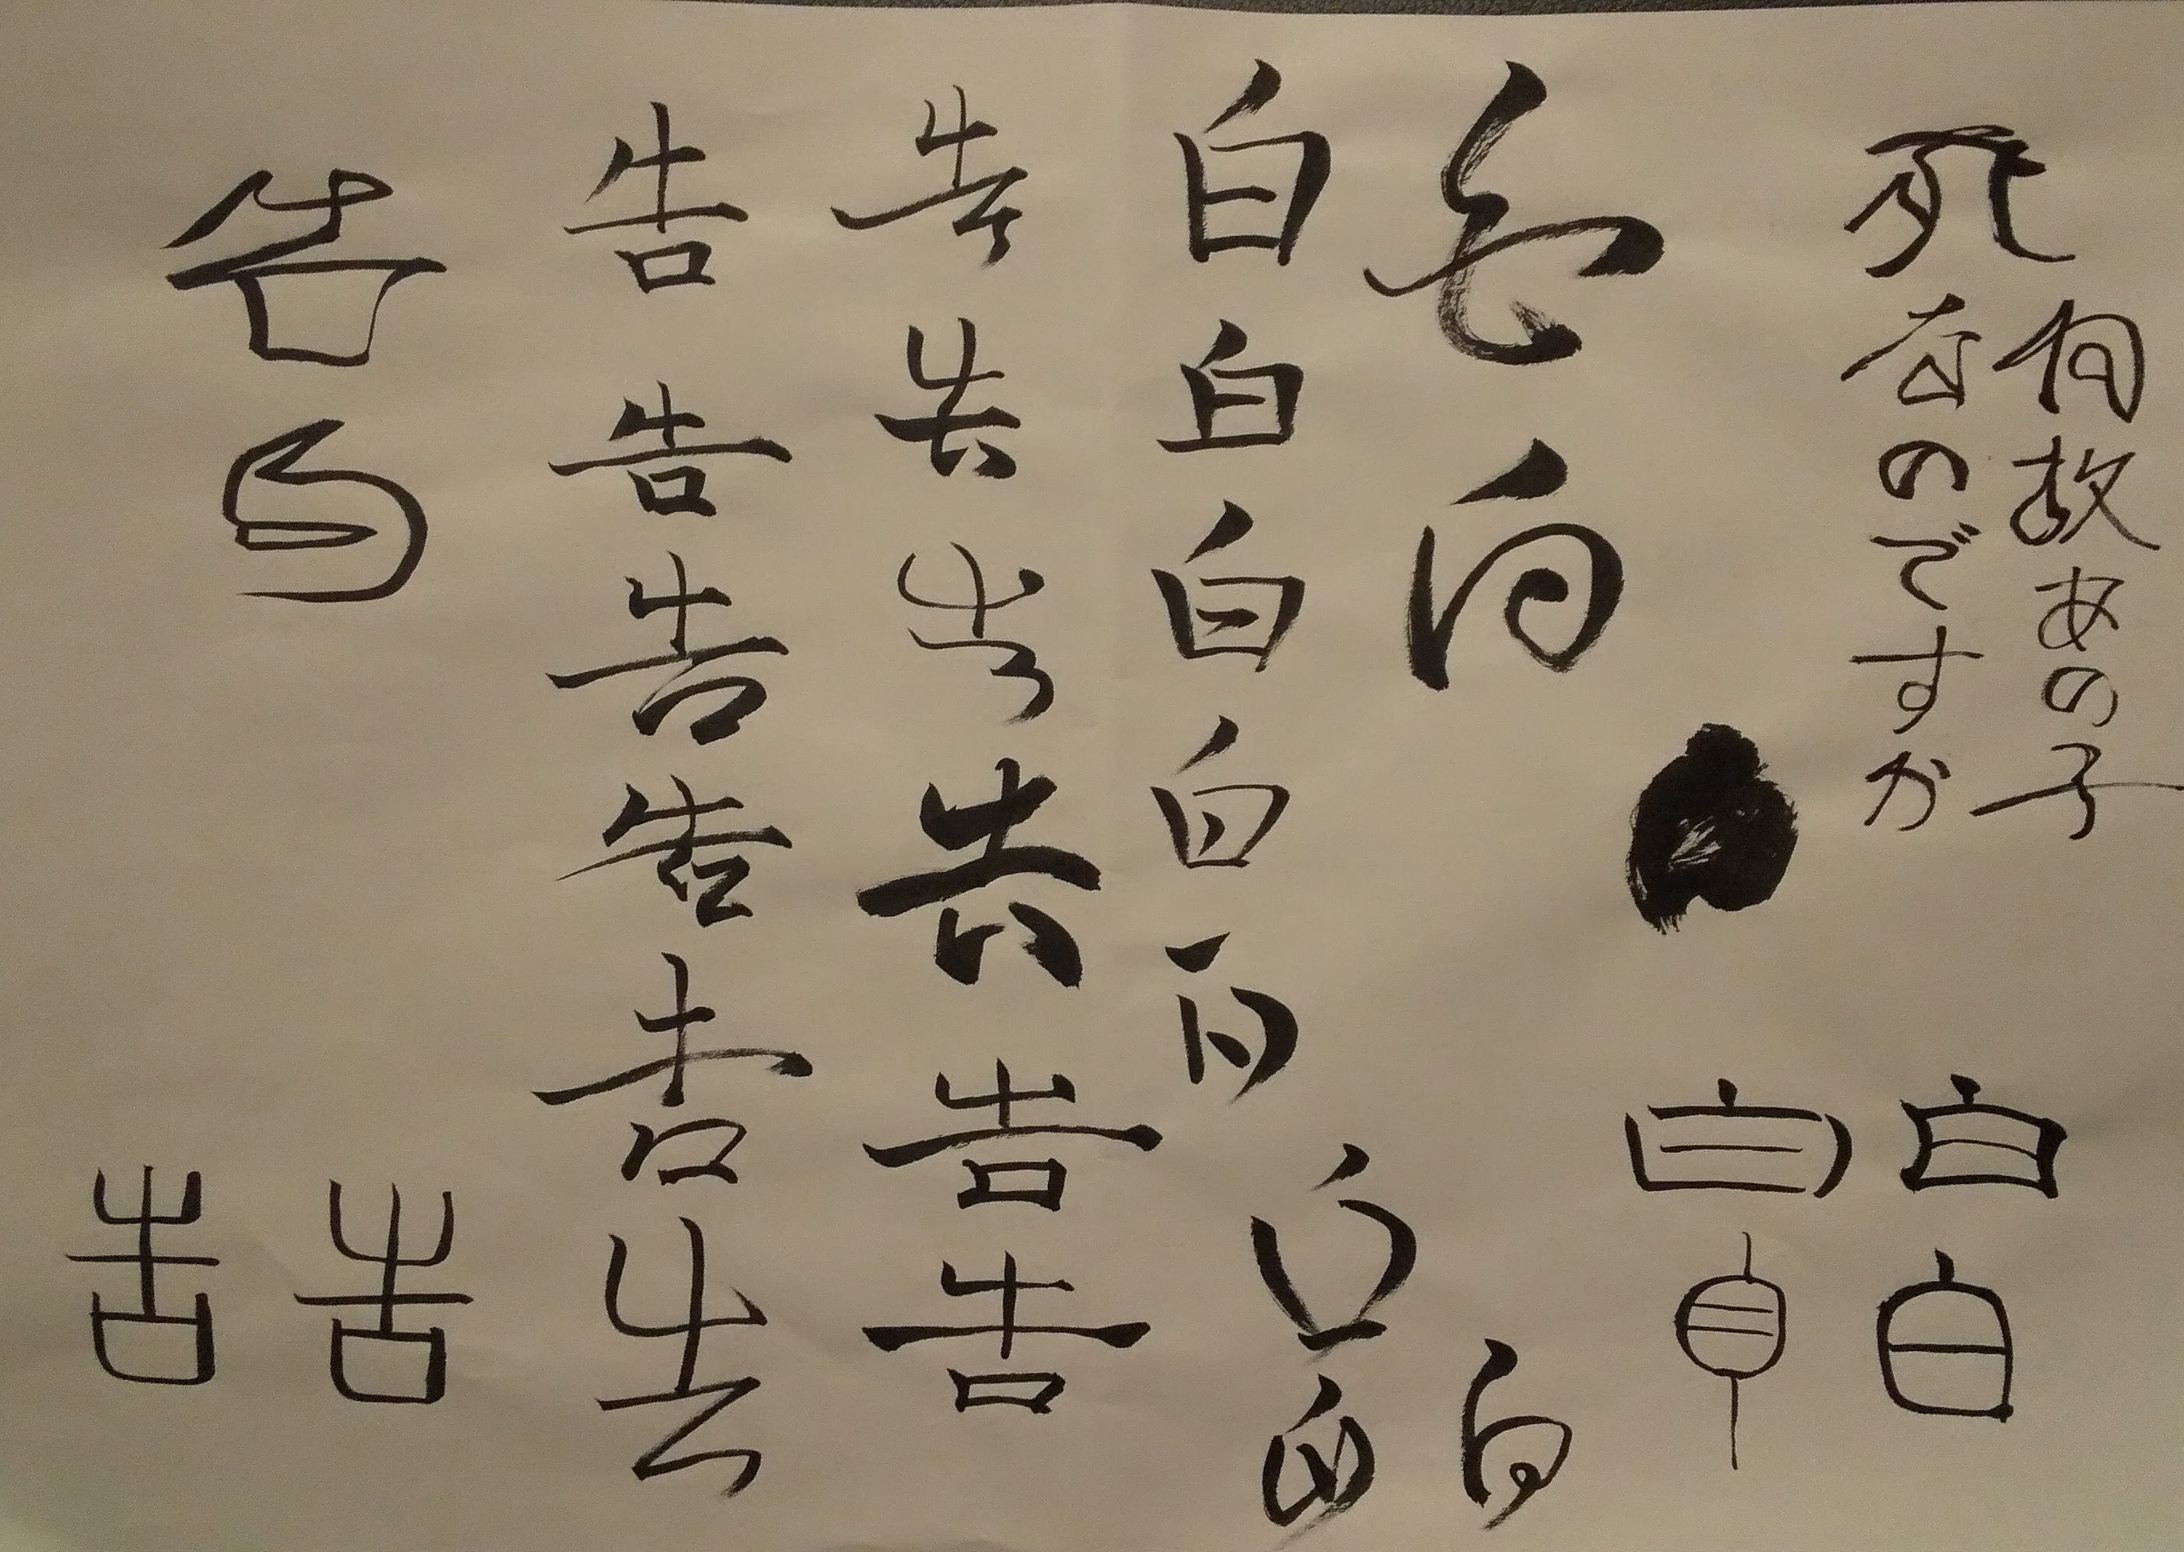 何故あの子
死なのですか
白
白
白白白白白白白
白
白
白
告告告告告告
告告告告告告
告
告
告